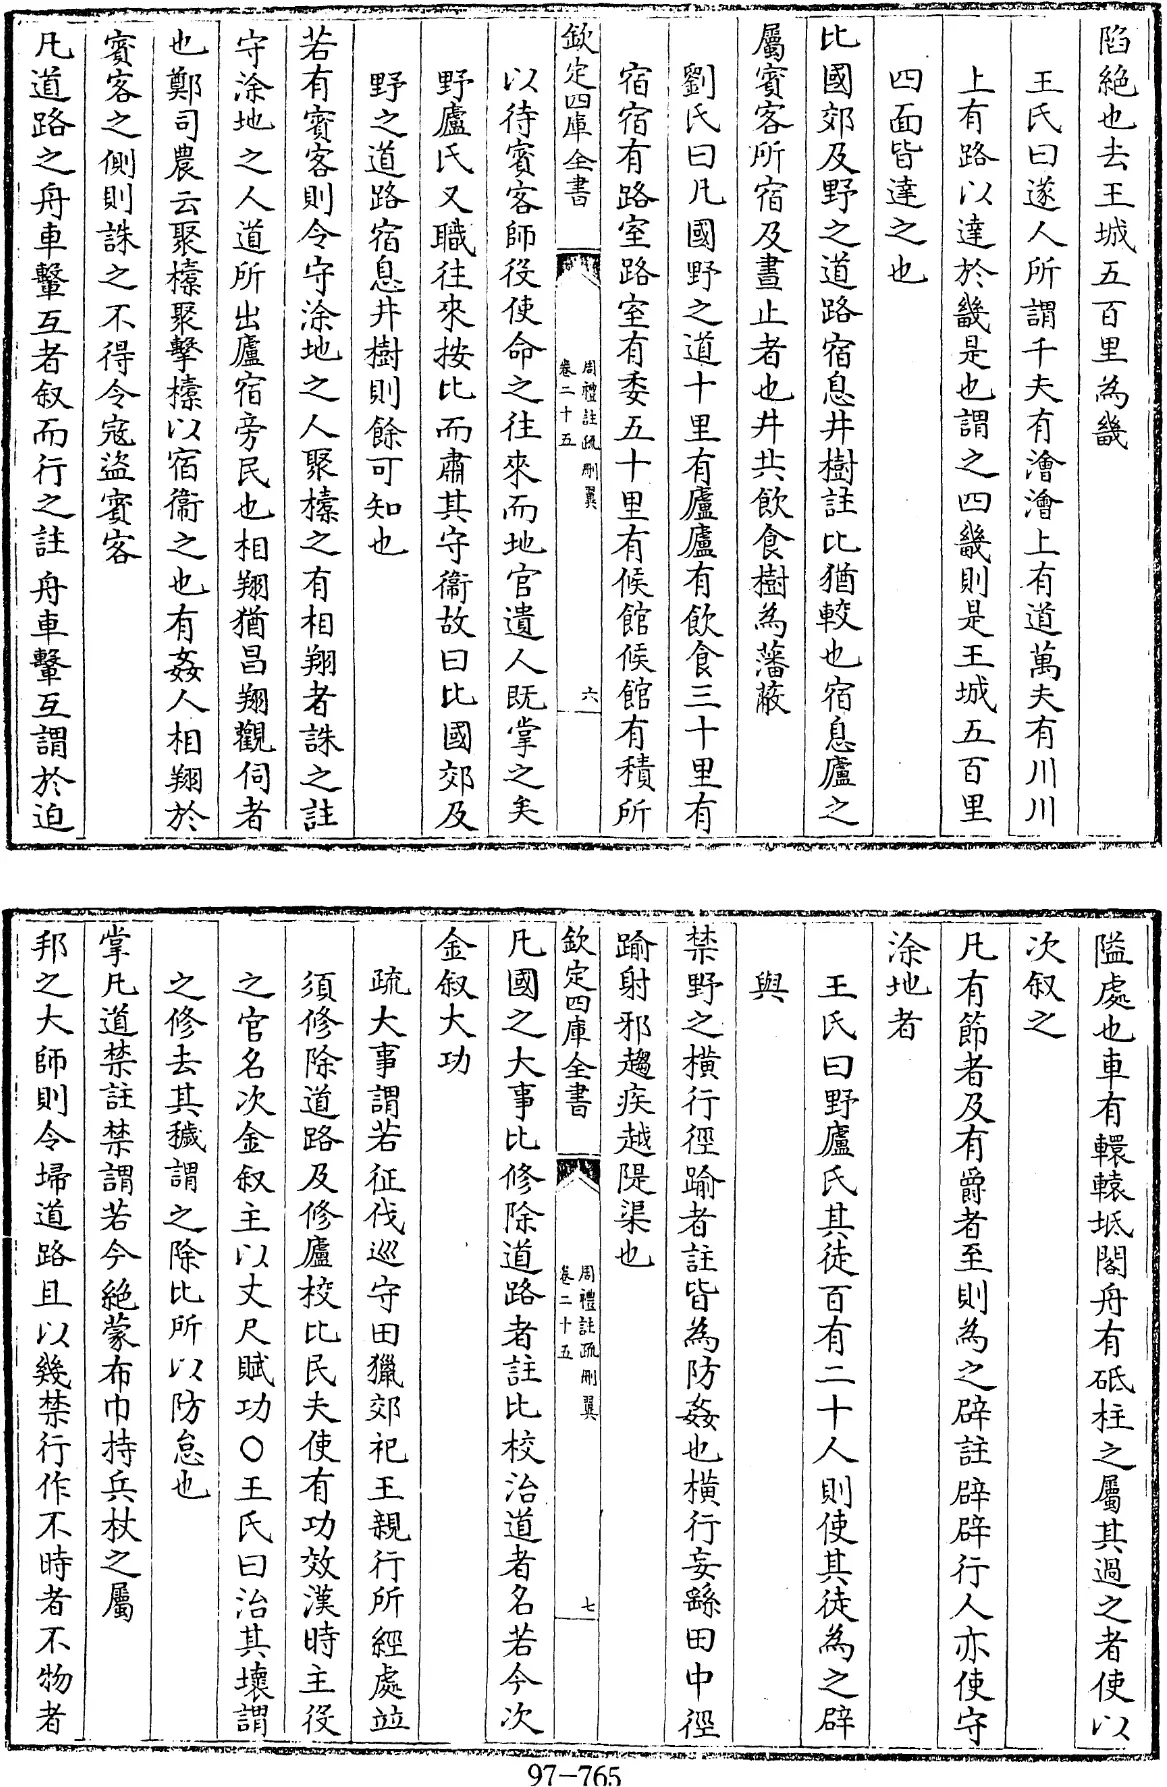 陷絶也去王城五百里為畿
王氏曰遂人所謂千夫有澮澮上有道萬夫有川川
上有路以達於畿是也謂之四畿則是王城五百里
四面皆達之也
比國郊及野之道路宿息井樹註比猶較也宿息廬之
屬賓客所宿及晝止者也井共飲食樹為藩蔽
劉氏曰凡國野之道十里有廬廬有飲食三十里有
宿宿有路室路室有委五十里有候館候館有積所
欽定四庫全書
周禮註疏刪翼
卷二十五
六
以待賓客師役使命之往來而地官遺人既掌之矣
野廬氏又職往來按比而肅其守衞故曰比國郊及
野之道路宿息井樹則餘可知也
若有賓客則令守涂地之人聚㯓之有相翔者誅之註
守涂地之人道所出廬宿旁民也相翔猶昌翔觀伺者
也鄭司農云聚㯓聚擊㯓以宿衞之也有姦人相翔於
賓客之側則誅之不得令寇盜賓客
凡道路之舟車轚互者叙而行之註舟車轚互謂於迫
隘處也車有轘轅坻閣舟有砥柱之屬其過之者使以
次叙之
凡有節者及有爵者至則為之辟註辟辟行人亦使守
涂地者
王氏曰野廬氏其徒百有二十人則使其徒為之辟
與
禁野之横行徑踰者註皆為防姦也横行妄繇田中徑
踰射邪趨疾越隄渠也
欽定四庫全書
周禮註疏刪翼
卷二十五
七
凡國之大事比修除道路者註比校治道者名若今次
金叙大功
疏大事謂若征伐巡守田獵郊祀王親行所經處並
須修除道路及修廬校比民夫使有功效漢時主役
之官名次金叙主以丈尺賦功○王氏曰治其壞謂
之修去其穢謂之除比所以防怠也
掌凡道禁註禁謂若今絶蒙布巾持兵杖之屬
邦之大師則令埽道路且以幾禁行作不時者不物者
97-765